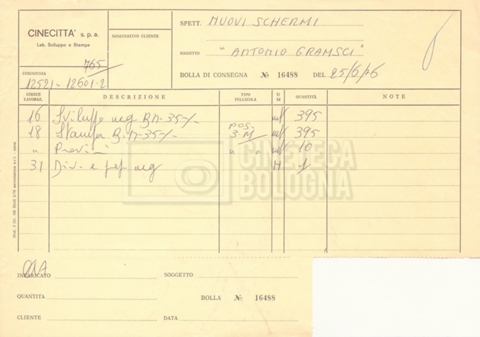 CINECITTA' s.p.a.
Lab. Sviluppo e Stampa
NOMINATIVO CLIENTE
SPETT. NUOVI SCHERMI
OGGETTO "ANTONIO GRAMSCI"
BOLLA DI CONSEGNA № 16488 DEL 25/6/76
765
12521-12601-2
CODICE LAVORAZ. DESCRIZIONE TIPO PELLICOLA QUANTITÀ NOTE
16 Sviluppo neg B.N. 35 395
18 Stampa B.N. 35 POS. 3 M 395
" Provini " " 10
31 Div. e neg M 1
CINETECA
BOLOGNA
INCARICATO SOGGETTO
QUANTITA BOLLA № 16488
CLIENTE DATA